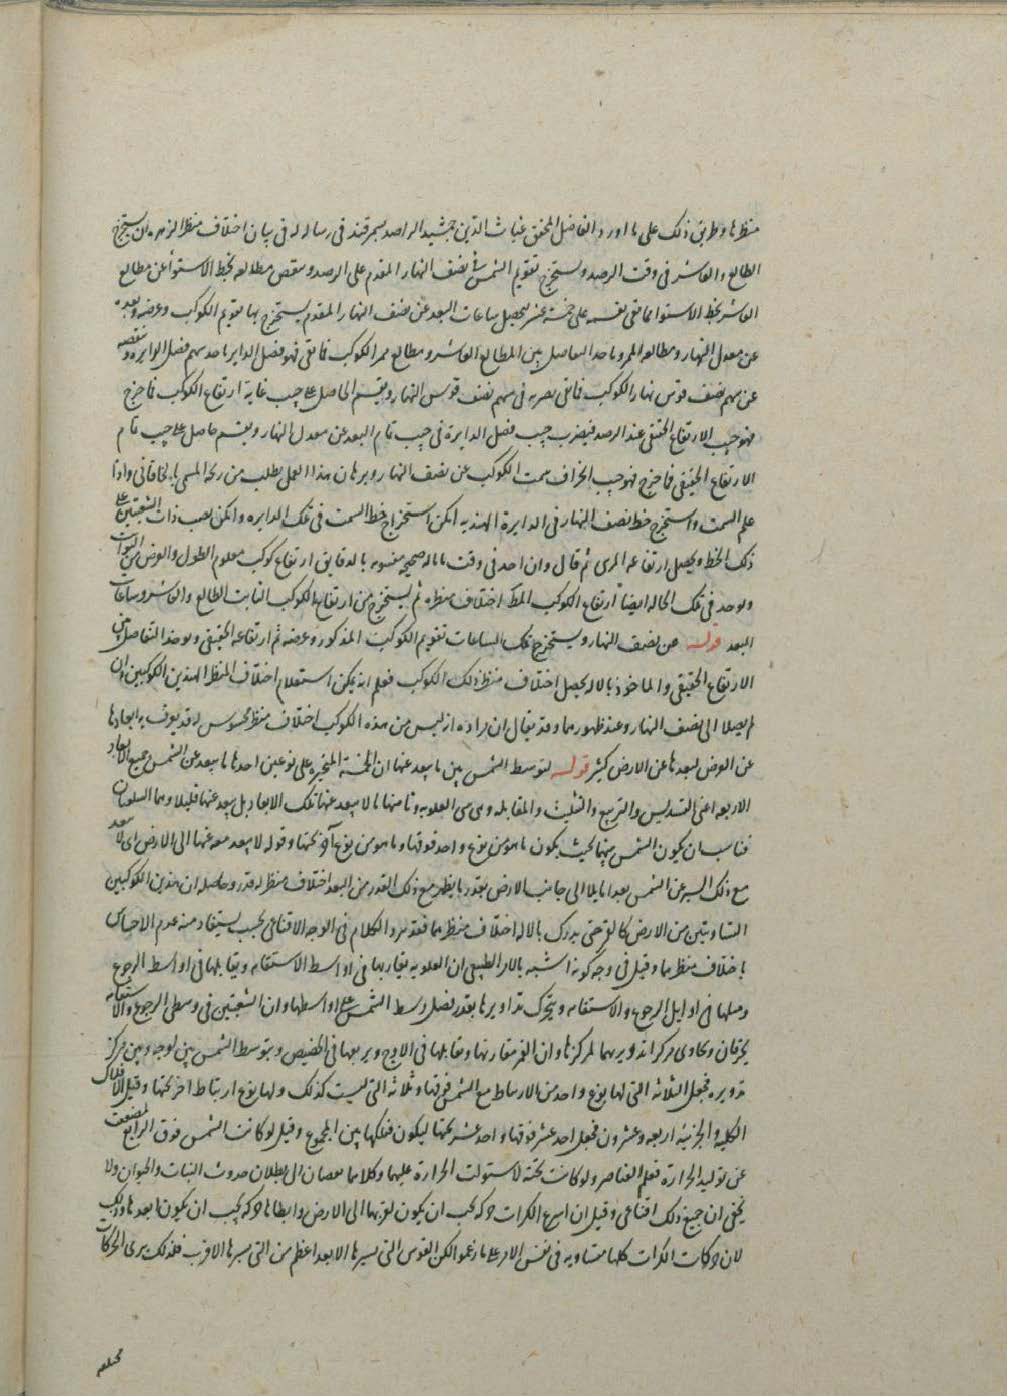 منظرها وطريق ذلك على ما اورد الفاضل المحقق غياث الدين جمشيد الراصد بسمرقند فى رسالة له فى بيان اختلاف منظر الزهره ان يستخرج
الطالع والعاشر فى وقت الرصد ويستخرج تقويم الشمس فى نصف النهار المقدم على الرصد وينقص مطالعه بخط الاستوا عن مطالع
العاشر بخط الاستوا فما بقى نقسمه على خمسة عشر ليحصل ساعات البعد عن نصف النهار المقدم يستخرج بها تقويم الكوكب وعرضه وبعده
عن معدل النهار ومطالع الممر وناخذ التفاصل بين المطالع العاشر ومطالع ممر الكوكب فما بقى فهو فضل الداير ناخذ سهم فضل الدايره وننقصه
عن سهم نصف قوس نهار الكوكب فما بقى نضربه فى سهم نصف قوس النهار ويقسم الحاصل على جيب غاية ارتفاع الكوكب فما خرج
فهو جيب الارتفاع الحقيقى عند الرصد فيضرب جيب فضل الدايرة فى جيب تمام البعد عن معدل النهار ويقسم حاصل على جيب تمام
الارتفاع الحقيقى فما خرج فهو جيب انحراف سمت الكوكب عن نصف النهار وبرهان هذا العمل يطلب من زيجه المسمى بالخاقانى واذا
علم السمت واستخرج خط نصف النهار فى الدايرة الهنديه امكن استخراج خط السمت فى تلك الدايره وامكن نصب ذات الشعبتين على
ذلك الخط ويحصل ارتفاعه المرى ثم قال وان احد فى وقت ما باله صحيحه مقسومه بالدقايق ارتفاع كوكب معلوم الطول والعرض من الثوابت
ويوخد فى تلك الحاله ايضا ارتفاع الكوكب المط اختلاف منظره ثم يستخرج من ارتفاع الكوكب الثابت الطالع والعاشر وساعات
البعد قوله عن نصف النهار ويستخرج تلك الساعات تقويم الكوكب المذكور وعرضه ثم ارتفاعه الحقيقى ويوخذ التفاصل بين
الارتفاع الحقيقى والماخوذ بالاله يحصل اختلاف منظر ذلك الكوكب فعلم انه يمكن استعلام اختلاف المنظر لهذين الكوكبين وان
لم يصلا الى نصف النهار وعند ظهورهما وقد يقال ان مراده انه ليس من هذه الكوكب اختلاف منظر محسوس له قد يعرف به ابعادها
عن العرض لبعدها عن الارض كثير قوله لتوسط الشمس بين ما يبعد عنها ان الخمسة المتحيره على نوعين احدها ما يبعد عن الشمس جميع الابعاد
الاربعه اعنى التسديس والتربيع والتثليث والمقابله وهى العلويه وثانيها ما لا يبعد عنها تلك الابعاد بل يبعد عنها قليلا وهما السفليان
فناسب ان يكون الشمس بينها بحيث يكون ما هو من نوع واحد فوقها وما هو من نوع آخر تحتها وقوله لا يبعد معه عنها الى الارض اى لا يبعد
مع ذلك السير عن الشمس بعدا مايلا الى جانب الارض بقدر ما يظهر مع ذلك القدر من البعد اختلاف منظر له قدر وحاصله ان هذين الكوكبين
ليسا قريبين من الارض كالقمر حتى يدرك بالاله اختلاف منظرهما فعند سرد الكلام فى الوجه الاقناعى بحسب يستفاد منه عدم الاحساس
باختلاف منظرهما وقيل فى وجه كونه اشبه بالامر الطبيعى ان العلويه يقاربها فى اواسط الاستقامه ويقابلها فى اواسط الرجوع
ومسلها فى اوايل الرجوع والاستقامه ويتحرك تداويرها بقدر فضل وسط الشمس على اواسطها وان السفليين فى وسطى الرجوع والاستقامه
يحترقان ويحاذى مركزا تدويريهما لمركزها وان القمر مقارنها ومقابلها فى الاوج ويربعها فى الحضيض ويتوسط الشمس بين اوجه وبين مركز
تدويره فجعل الثلاثه التى لها نوع واحد من الارتباط مع الشمس فوقها وثلاثه التى ليست كذلك ولها نوع ارتباط اخر تحتها وقيل الافلاك
الكليه والجزئية اربعه وعشرون فجعل احد عشر فوقها واحد عشر تحتها ليكون فلكها بين المجموع وقيل لو كانت الشمس فوق الرابع لضعفت
عن توليد الحرارة فعلم العناصر ولو كانت تحته لاستولت الحرارة عليها وكلاهما يفضيان الى بطلان حدوث النبات والحيوان ولا
يخفى ان جميع ذلك اقناعى وقيل ان اسرع الكرات حركه يجب ان يكون اقربها الى الارض وابطاها حركه يجب ان يكون ابعدها وذلك
لان حركات الكرات كلها متساويه فى نفس الامر على ما زعموا لكن القوس التى يسيرها الابعد اعظم من التى يسيرها الاقرب فلذلك يرى الحركات
مختلفه